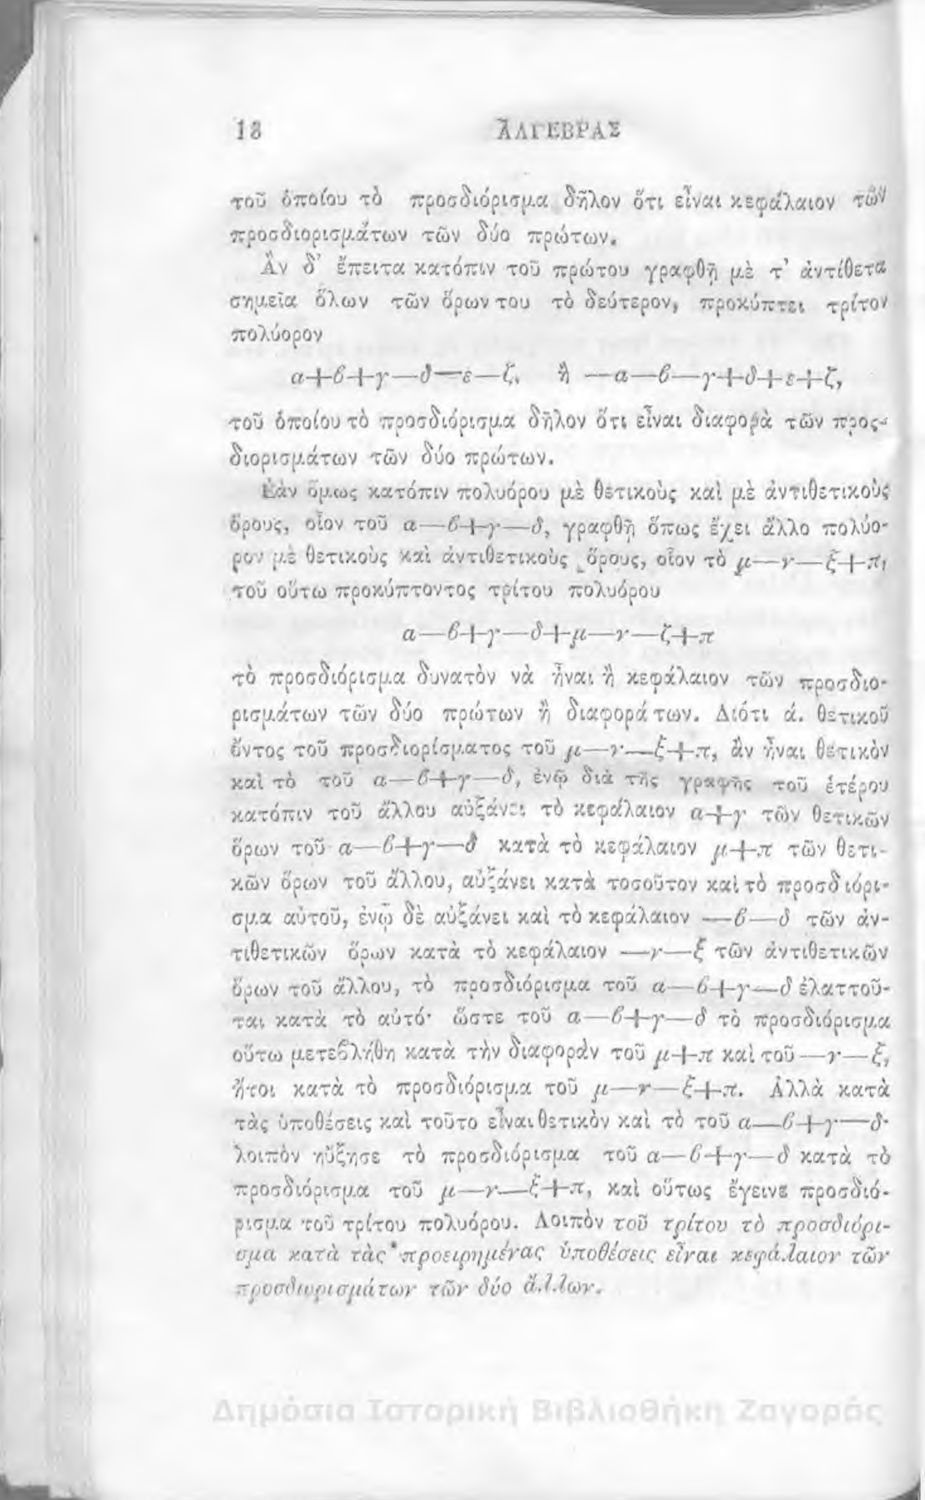 18 ἈΛΓΕΒΡΑΣ
τοῦ ὁποίου τὸ προσδιόρισμα δῆλον ὅτι εἶναι κεφάλαιον τῶν
προσδιορισμάτων τῶν δύο πρώτων.
Ἂν δ’ ἔπειτα κατόπιν τοῦ πρώτου γραφθῇ μὲ τ’ ἀντίθετα
σημεῖα ὅλων τῶν ὅρων του τὸ δεύτερον, προκύπτει τρίτον
πολύορον
α+β+γ—δ—ε—ζ, ἢ —α—β—γ+δ+ε+ζ,
τοῦ ὁποίου τὸ προσδιόρισμα δῆλον ὅτι εἶναι διαφορὰ τῶν προς-
διορισμάτων τῶν δύο πρώτων.
Ἐὰν ὅμως κατόπιν πολυόρου μὲ θετικοὺς καὶ μὲ ἀντιθετικοὺς
ὅρους, οἷον τοῦ α—β+γ—δ, γραφθῇ ὅπως ἔχει ἄλλο πολύο-
ρον μὲ θετικοὺς καὶ ἀντιθετικοὺς ὅρους, οἷον τὸ μ—ν—ξ+π,
τοῦ οὕτω προκύπτοντος τρίτου πολυόρου
α—β+γ—δ+μ—ν—ζ+π
τὸ προσδιόρισμα δυνατὸν νὰ ἦναι ἢ κεφάλαιον τῶν προσδιο-
ρισμάτων τῶν δύο πρώτων ἢ διαφορά των. Διότι ά. θετικοῦ
ὄντος τοῦ προσδιορίσματος τοῦ μ—ν—ξ+π, ἂν ἦναι θετικὸν
καὶ τὸ τοῦ α—β+γ—δ, ἐνῷ διὰ τῆς γραφῆς τοῦ ἑτέρου
κατόπιν τοῦ ἄλλου αὐξάνει τὸ κεφάλαιον α+γ τῶν θετικῶν
ὅρων τοῦ α—β+γ—δ κατὰ τὸ κεφάλαιον μ+π τῶν θετι-
κῶν ὅρων τοῦ ἄλλου, αὐξάνει κατὰ τοσοῦτον καὶ τὸ προσδιόρι-
σμα αὐτοῦ, ἐνῷ δὲ αὐξάνει καὶ τὸ κεφάλαιον —β—δ τῶν ἀν-
τιθετικῶν ὅρων κατὰ τὸ κεφάλαιον —ν—ξ τῶν ἀντιθετικῶν
ὅρων τοῦ ἄλλου, τὸ προσδιόρισμα τοῦ α—β+γ—δ ἐλαττοῦ-
ται κατὰ τὸ αὐτό· ὥστε τοῦ α—β+γ—δ τὸ προσδιόρισμα
οὕτω μετεβλήθη κατὰ τὴν διαφορὰν τοῦ μ+π καὶ τοῦ —ν—ξ,
ἤτοι κατὰ τὸ προσδιόρισμα τοῦ μ—ν—ξ+π. Ἀλλὰ κατὰ
τὰς ὑποθέσεις καὶ τοῦτο εἶναι θετικὸν καὶ τὸ τοῦ α—β+γ—δ·
λοιπὸν ηὔξησε τὸ προσδιόρισμα τοῦ α—β+γ—δ κατὰ τὸ
προσδιόρισμα τοῦ μ—ν—ξ+π, καὶ οὕτως ἔγεινε προσδιό-
ρισμα τοῦ τρίτου πολυόρου. Λοιπὸν τοῦ τρίτου τὸ προσδιόρι-
σμα κατὰ τὰς προειρημένας ὑποθέσεις εἶναι κεφάλαιον τῶν
προσδιορισμάτων τῶν δύο ἄλλων.
Δημόσια Ιστορική Βιβλιοθήκη Ζαγοράς